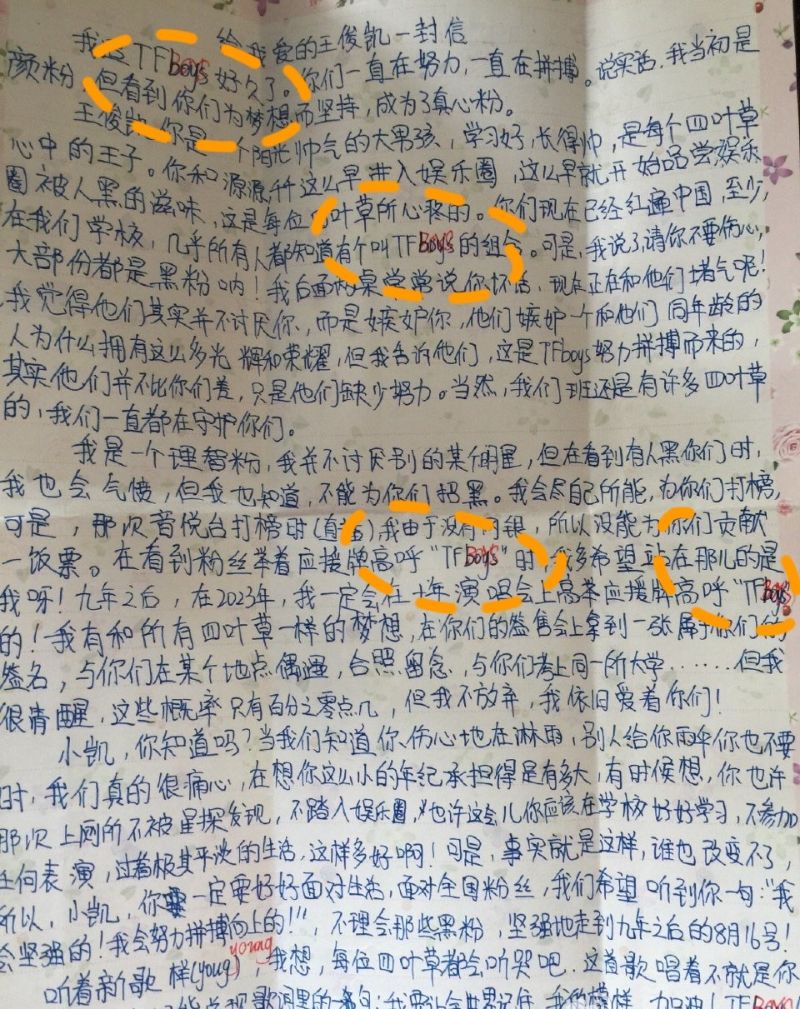 给我爱的王俊凯一封信
我 TFBoys好久了。你们一直在努力,一直在拼搏。说实话,我当初是
颜粉,但看到你们为梦想而坚持,成为了真心粉。
王俊凯,你是一个阳光帅气的大男孩,学习好,长得帅,是每个四叶草
心中的王子。你和源源,千这么早进入娱乐圈,这么早就开始品尝娱乐
圈被人黑的滋味,这是每位四叶草所心疼的。你们现在已经红遍中国,至少,
在我们学校,几乎所有人都知道有个叫TFBoys的组合。可是,我说了请你不要伤心,
大部份都是黑粉呐!我后面两桌常常说你坏话,现在正在和他们堵气呢!
我觉得他们其实并不讨厌你,而是嫉妒你,他们嫉妒一个和他们同年龄的
人为什么拥有这么多光辉和荣耀,但我告诉他们,这是TFboys努力拼搏而来的,
其实他们并不比你们差,只是他们缺少努力。当然,我们班还是有许多四叶草
的,我们一直都在守护你们。
我是一个理智粉,我并不讨厌别的某个明星,但在看到有人黑你们时,
我也会气愤,但我也知道,不能为你们招黑。我会尽自己所能,为你们打榜,
可是,那次音悦台打榜时(直 ),我由于没有网银,所以没能为你们贡献
一饭票。在看到粉丝举着应援牌高呼“TFBoys”时,我多希望站在那儿的是
我呀!九年之后,在2023年,我一定会在十年演唱会上高举应援牌高呼“TFBoys”
的!我有和所有四叶草一样的梦想,在你们的签售会上拿到一张属于你们的
签名,与你们在某个地点偶遇,合照留念,与你们考上同一所大学……但我
很清醒,这些概率只有百分之零点几,但我不放弃,我依旧爱着你们!
小凯,你知道吗?当我们知道你伤心地在淋雨,别人给你雨伞你也不要
时,我们真的很痛心,在想你这么小的年纪承担得是有多大,有时候想,你也许
那次上网所不被星探发现,不踏入娱乐圈,也许这会儿你应该在学校好好学习,不参加
任何表演,过着极其平淡的生活,这样多好啊!可是,事实就是这样,谁也改变不了,
所以,小凯,你一定要好好面对生活,面对全国粉丝,我们希望听到你一句:“我
会坚强的!我会努力拼搏向上的!”,不理会那些黑粉,坚强地走到九年之后的8月16号!
听着新歌样(yong) young,我想,每位四叶草都会听哭吧,这首歌唱着不就是你
歌词里的 句:我要让全世界记住我的模样,加油!TFBoys